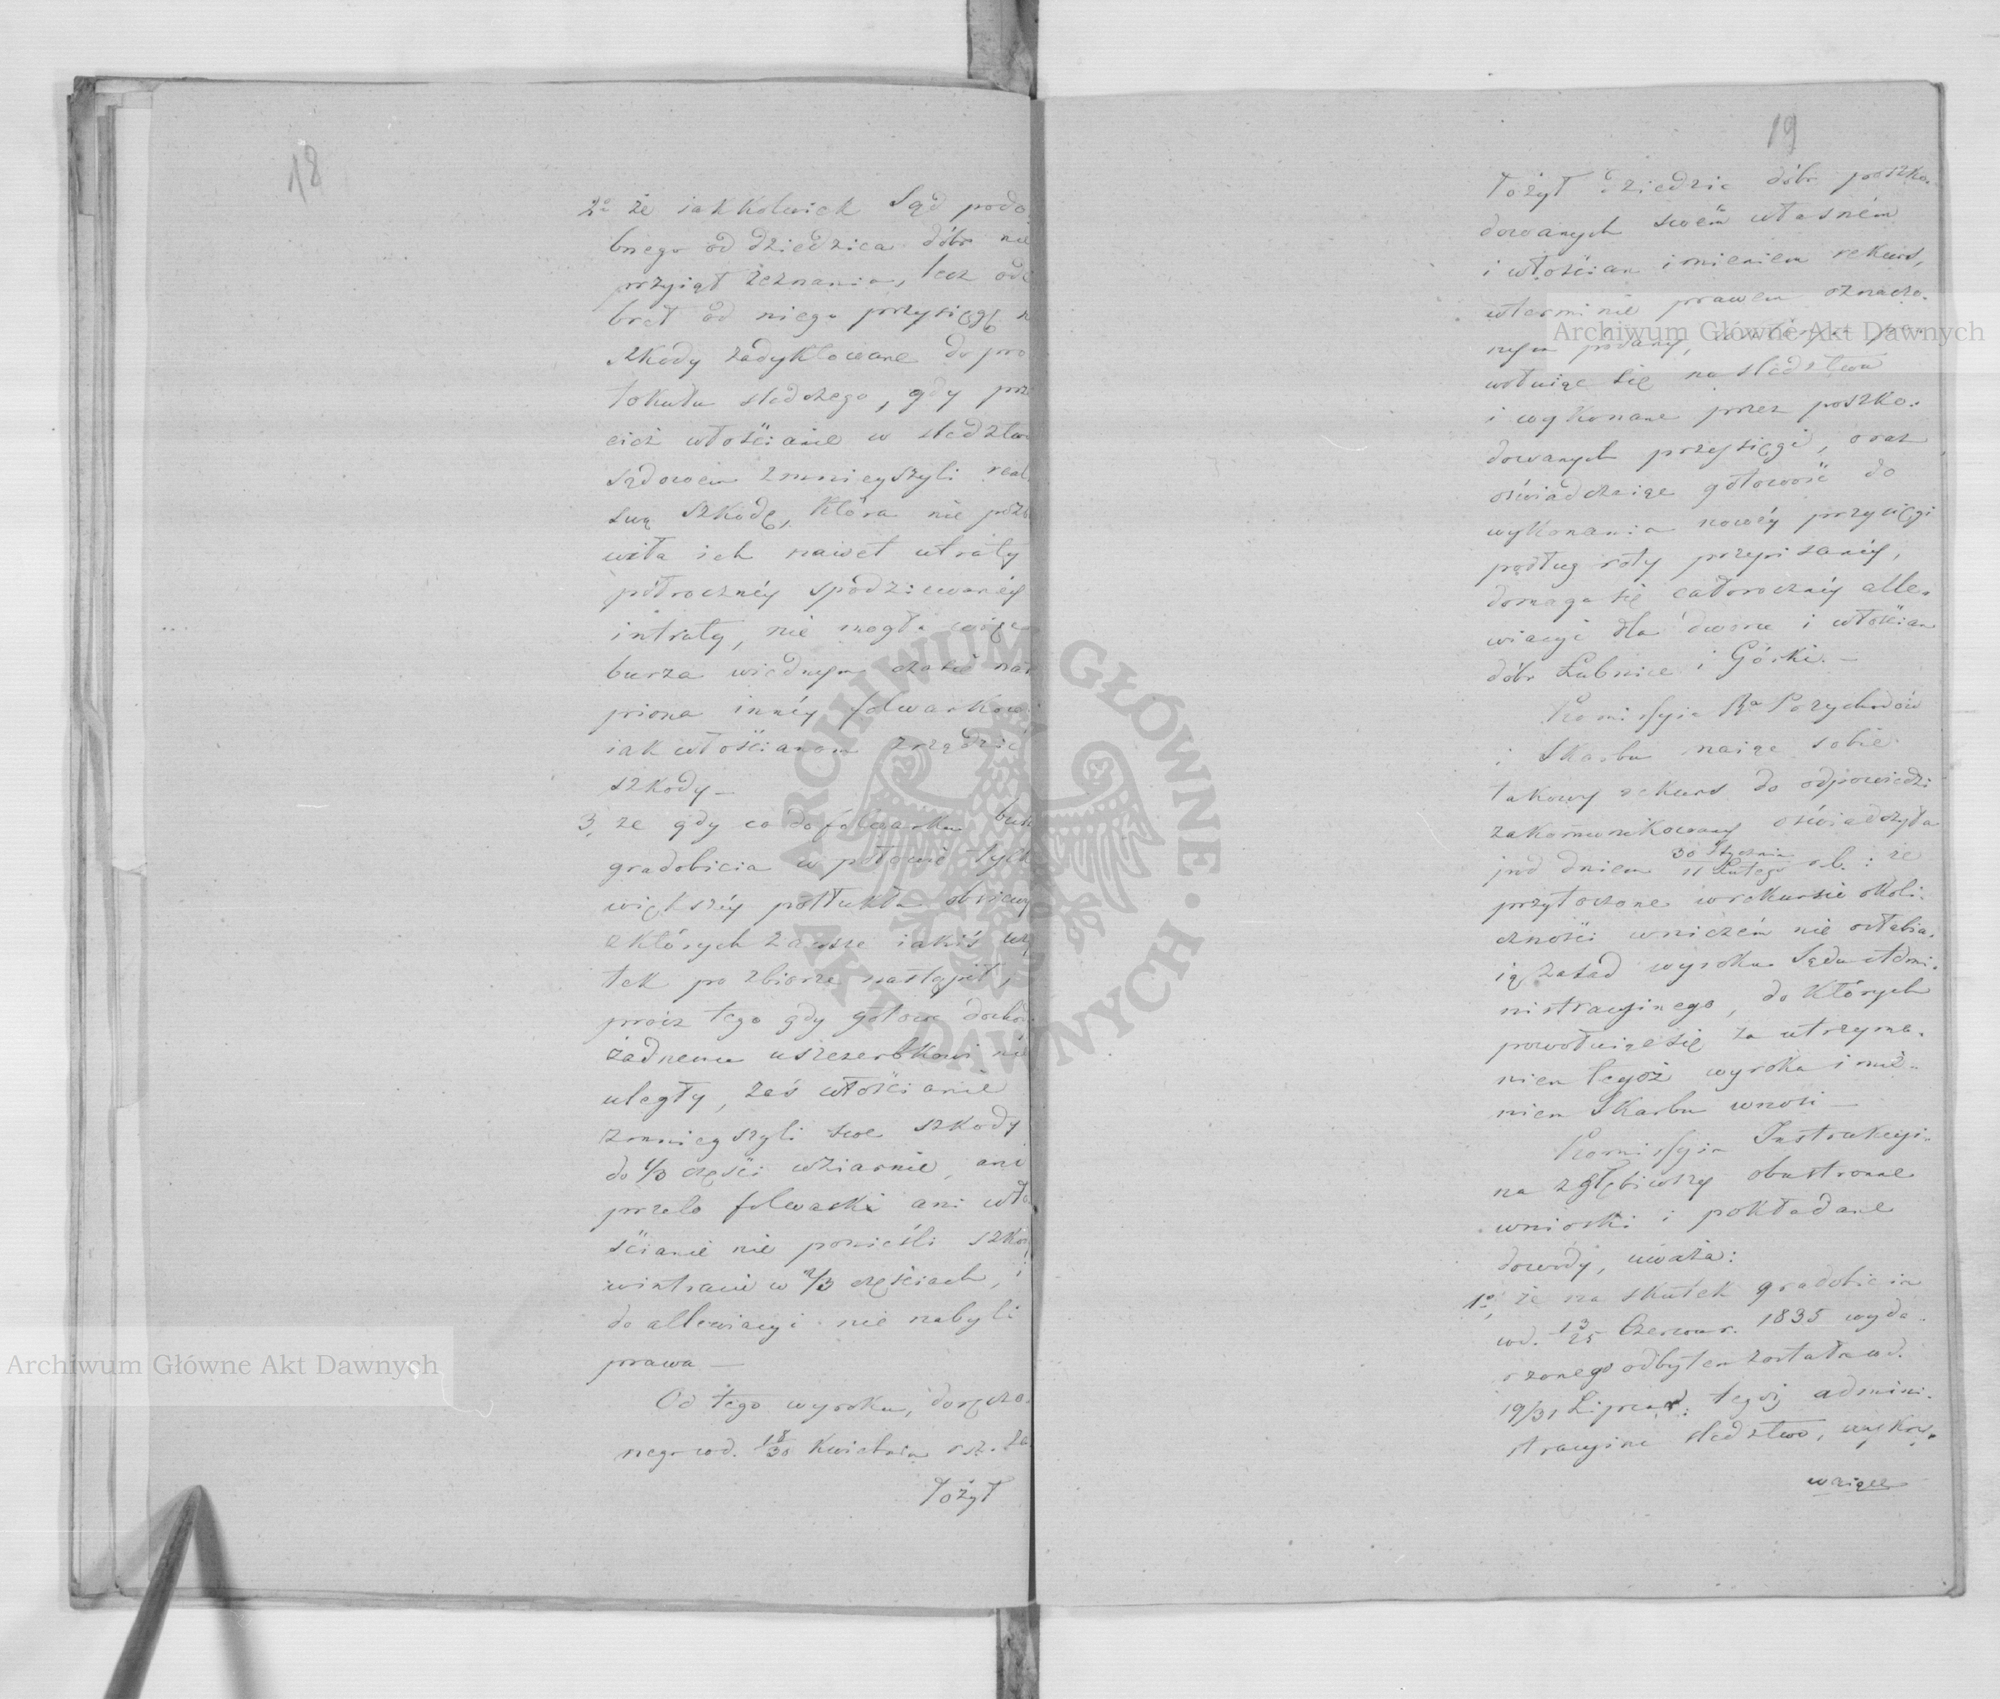 18
2o że jakkolwiek Sąd podo
bnego od dziedzica dóbr nie
przyiął zeznania, lecz ode
brał od niego przysięgę n
szkody zadyktowane do pro
tokułu śledczego, gdy prze
cież włościanie w śledztw
sądowem zmnieyszyli real
swą szkodę, która nie pozb
wiła ich nawet utraty
półrocznéy spodziewanéy
intraty, nie mogła więc
burza wiednym czasie na
piona innéy folwarkow
iak włościanom zrządzić
szkody —
3, że gdy co do folwarku
gradobicia w połowie tylk
większéy potłukła oziminy
z których zawsze iakiś uż
tek po zbiorze nastąpił,
prócz tego gdy gotowe docho
żadnemu uszczerbkowi nie
uległy, zaś włościanie
zmnieyszyli swe szkody
do 1/3 części wziarnie, ani
przeto folwarki ani wło
ścianie nie ponieśli szko
wintracie w 2/3 częściach, i
do allewiacyi nie nabyli
prawa —
Od tego wyroku, doręczo
nego wd. 18/30 Kwietnia r. z. za
łożył
19
łożył dziedzic dóbr poszko-
dowanych swém własném
i włościan imieniem rekurs,
wterminie prawem oznaczo-
nym podany,
wołuiąc się na śledztwa
i wykonane przez poszko-
dowanych przysięgi, oraz
oświadczaiąc gotowość do
wykonania nowéy przysięgi
podług roty przepisanéy,
domaga się całorocznéy alle-
wiacyi dla dworu i włościan
dóbr Łubnice i Górki. —
Kommissyia Rza Przychodów
i Skarbu maiąc sobie
takowy rekurs do odpowiedzi
zakommunikowany oświadczyła
pod dniem 30 Stycznia/11 Lutego r. b.: że
przytoczone wrekursie okoli-
czności wniczém nie osłabia-
ią zasad wyroku Sądu Admi-
nistracyinego, do których
powołuiąc się za utrzyma-
niem tegoż wyroku imie-
niem Skarbu wnosi —
Kommissyia Instrukcyi-
na zgłębiwszy obustronne
wnioski i pokładane
dowody, uważa:
1o, że na skutek gradobicia
wd. 13/25 Czerwca r. 1835 wyda-
rzonego odbytem zostało wd.
19/31 Lipca r. tegoż admini-
stracyine śledztwo,
Archiwum Główne Akt Dawnych
Archiwum Główne Akt Dawnych
ARCHIWUM GŁÓWNE · AKT DAWNYCH ·